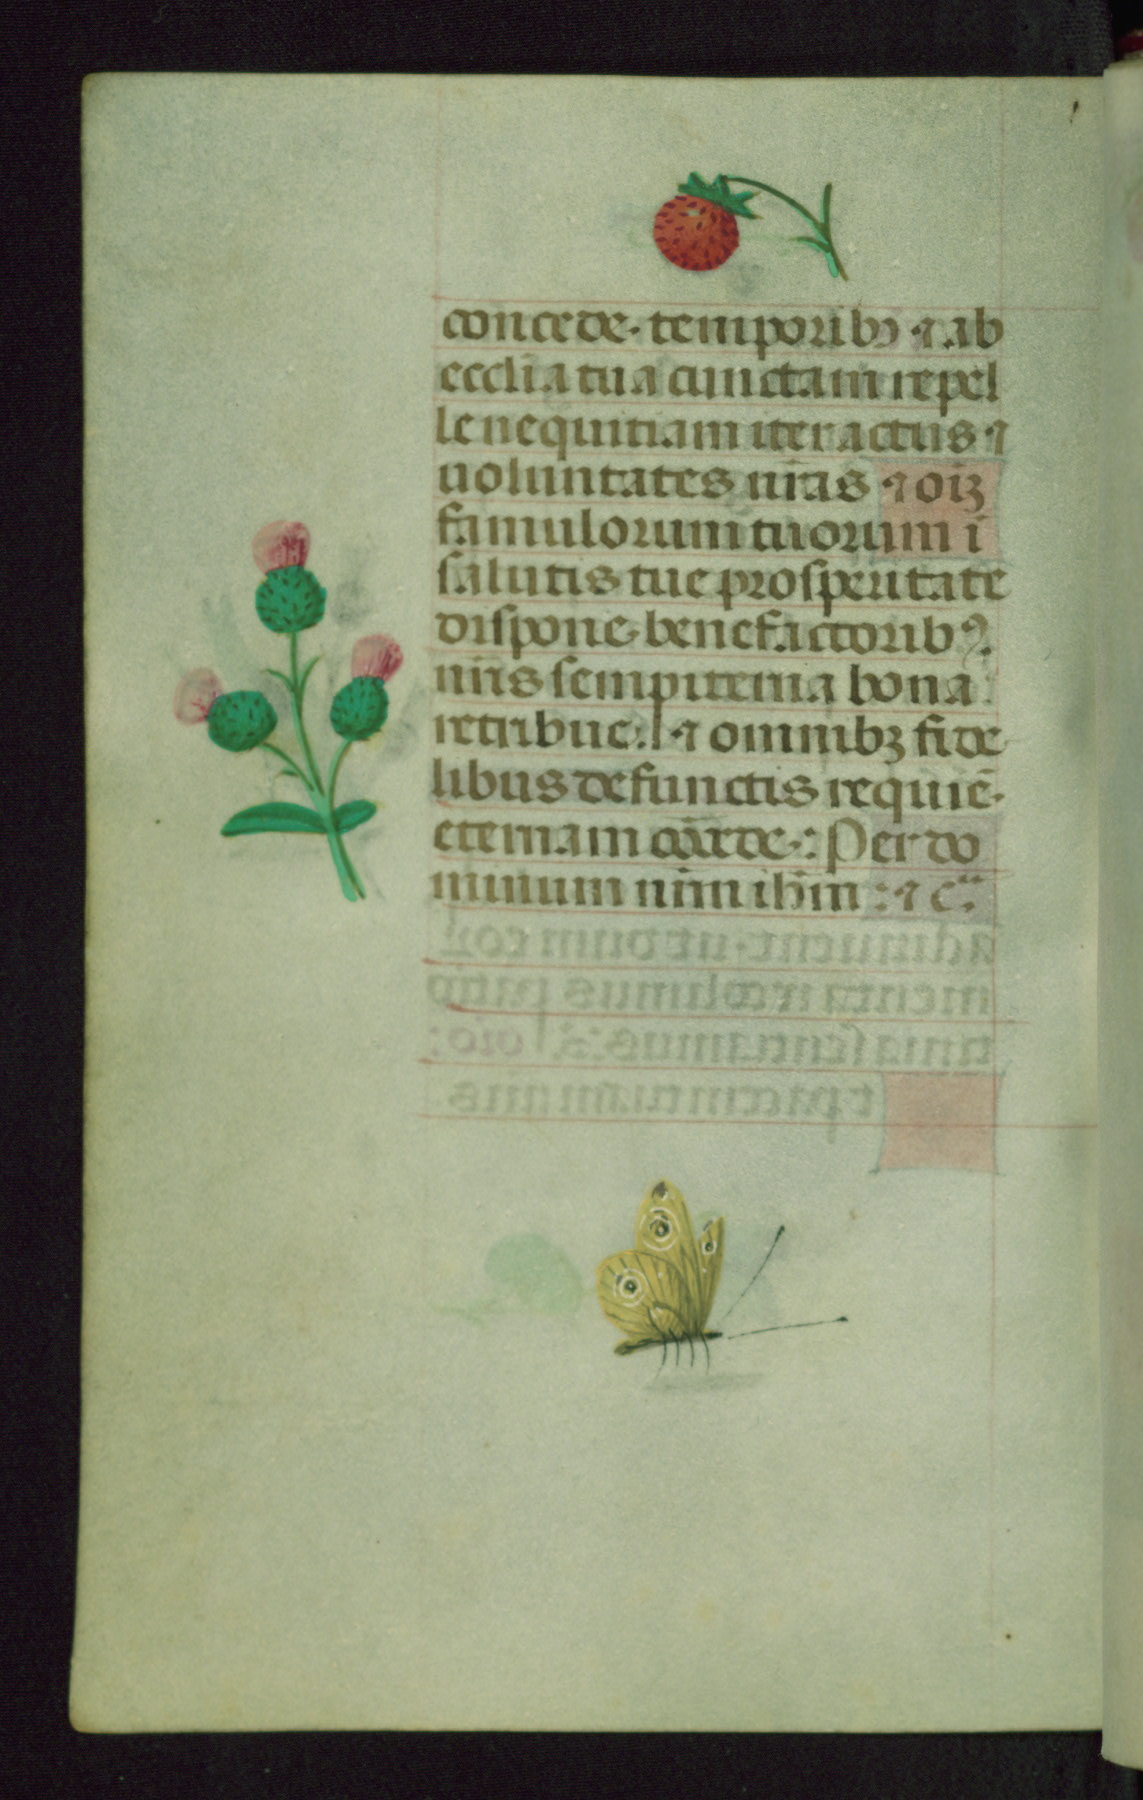 concede· temporibꝫ ⁊ ab
ecclīa tua cunctam repel
le nequitiam iter actus ⁊
uoluntates nr̄as ⁊ oīꝫ
famulorum tuorum ī
salutis tue prosperitate
dispone· benefactoribꝰ·
nr̄is sempiterna bona
retribue· ⁊ omnibꝫ fide
libus defunctis requiē·
eternam
Per do
minum nr̄m ih̄m : ⁊ c̈·